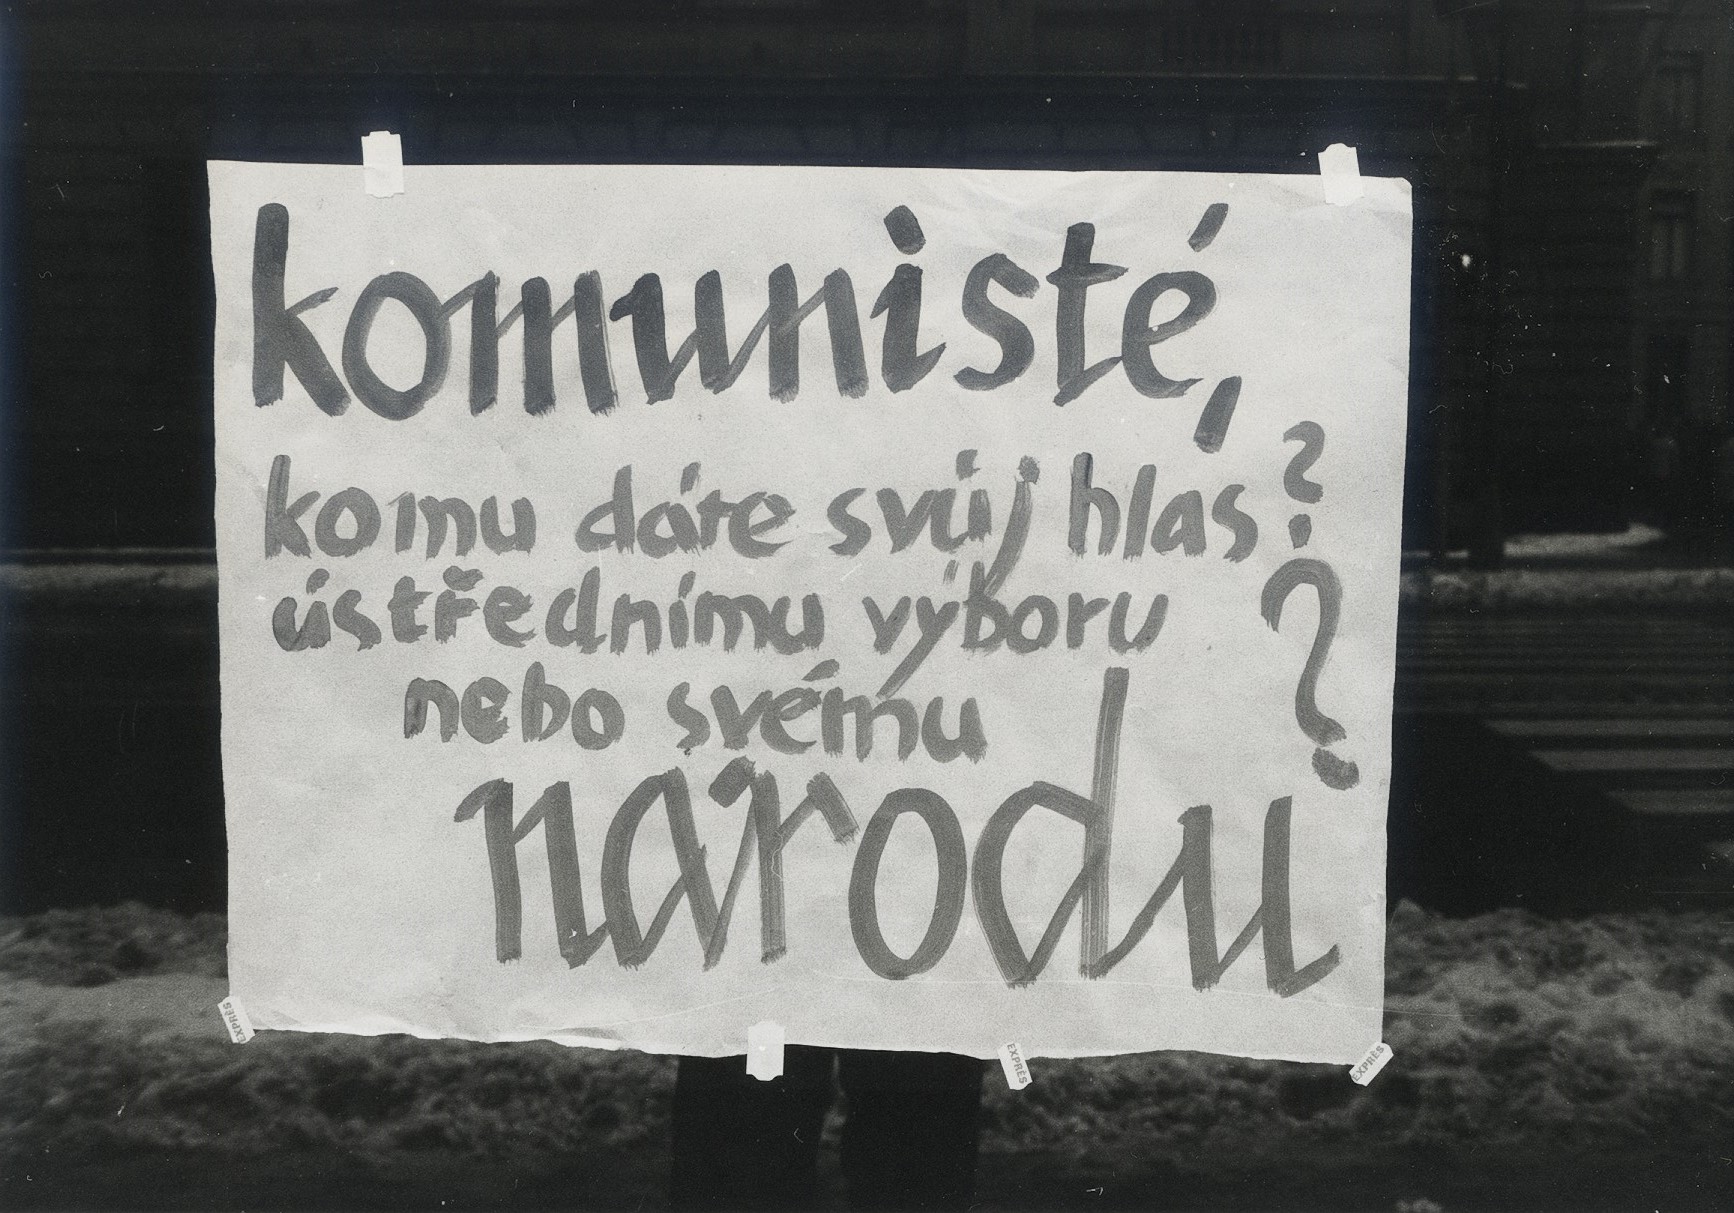 komunisté,
komu dáte svůj hlas?
ústřednímu výboru
nebo svému
národu?
EXPRÈS
EXPRÈS
EXPRÈS